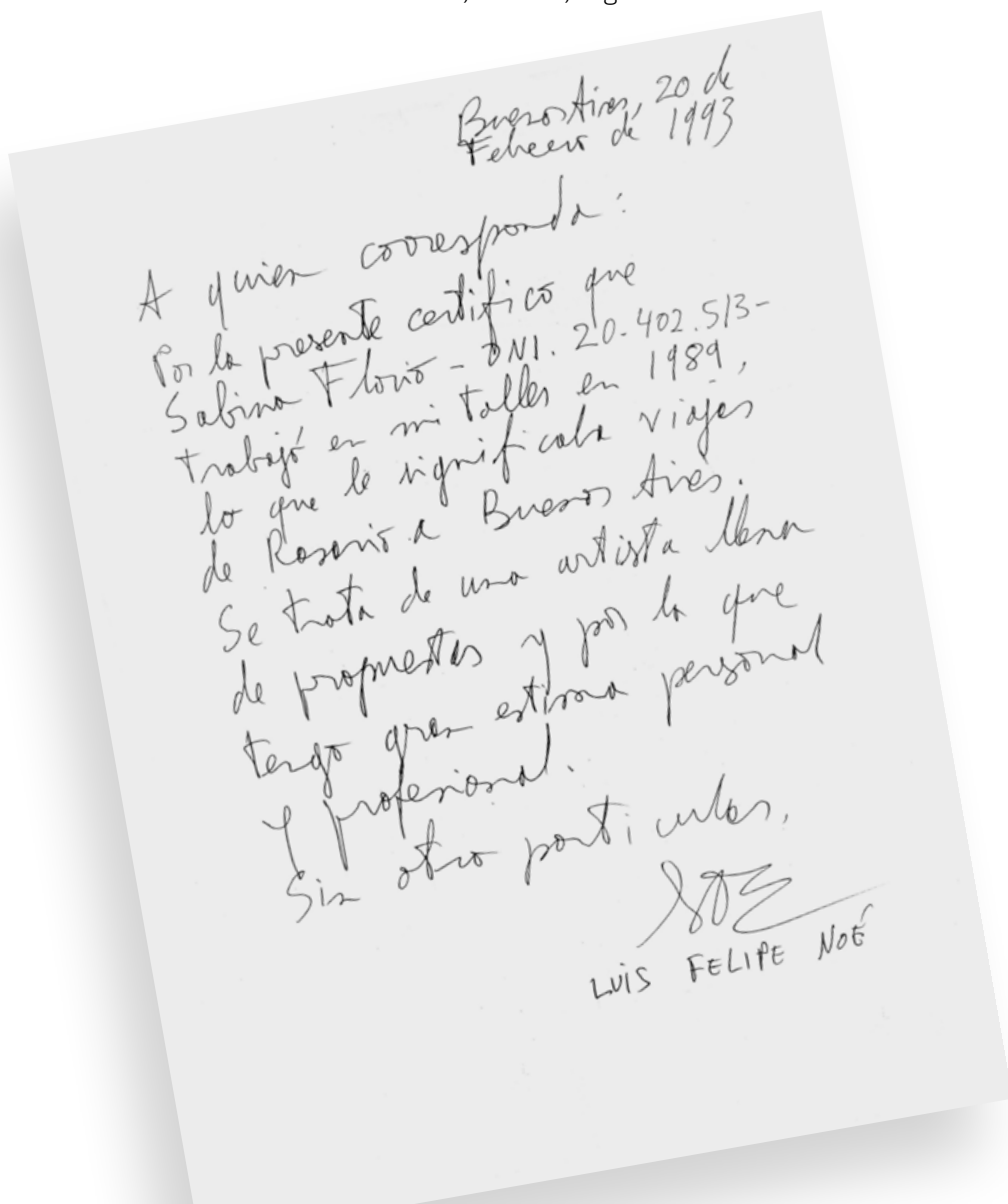 Buenos Aires, 20 de
Febrero de 1993
A quien corresponda:
Por la presente certifico que
Sabina Florio - DNI. 20.402.513-
trabajó en mi taller en 1989,
lo que le significaba viajes
de Rosario a Buenos Aires.
Se trata de una artista llena
de propuestas y por la que
tengo gran estima personal
y profesional.
Sin otro particular,
NOE
LUIS FELIPE NOÉ